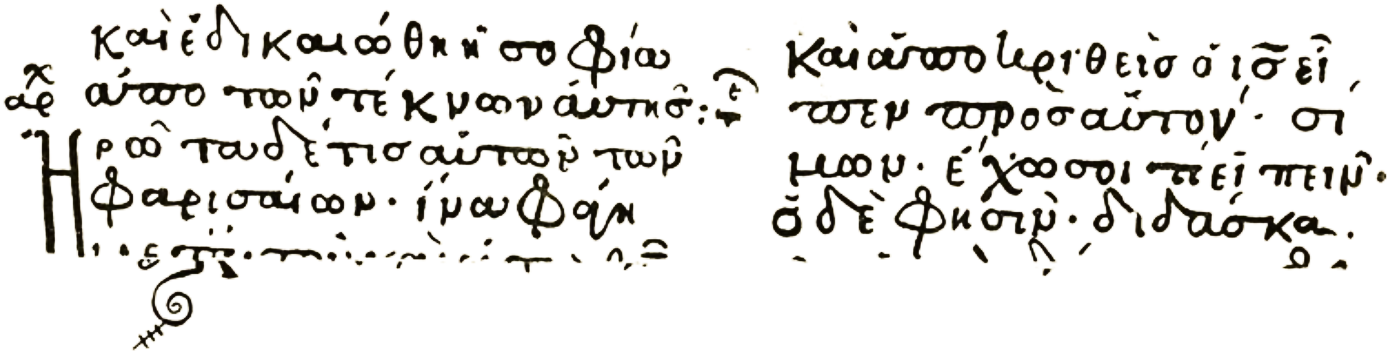 καὶ ἐδικαιώθη ἡ σοφία
ἀπὸ τῶν τέκνων ἀυτῆς : τε
αρχ
Ἠρώτα δέ τις αὐτῶν τῶν
Φαρισαίων· ἵνα φάγη
καὶ ἀποκριθεὶς ὁ ις̅ εἶ
πεν πρὸς αὐτόν· σί
μων· ἔχω σοι τί εἰπεῖν·
ὁ δὲ φησὶν· διδάσκα